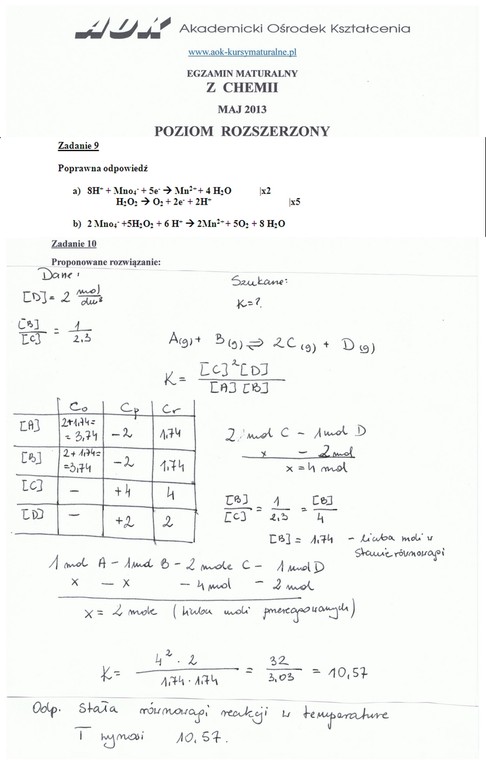 AOK Akademicki Ośrodek Kształcenia
www.aok-kursymaturalne.pl
EGZAMIN MATURALNY
Z CHEMII
MAJ 2013
POZIOM ROZSZERZONY
Zadanie 9
Poprawna odpowiedź
a) 8H⁺ + Mno₄⁻ + 5e⁻ → Mn²⁺ + 4 H₂O |x2
H₂O₂ → O₂ + 2e⁻ + 2H⁺ |x5
b) 2 Mno₄⁻ +5H₂O₂ + 6 H⁺ → 2Mn²⁺ + 5O₂ + 8 H₂O
Zadanie 10
Proponowane rozwiązanie:
Dane: Szukane:
[D] = 2 mol/dm³ K=?
[B]/[C] = 1/2,3
A(g) + B(g) ⇌ 2C(g) + D(g)
K = [C]²[D]/[A][B]
Co Cp Cr
[A] 2+1,74= = 3,74 -2 1,74
[B] 2+1,74= =3,74 -2 1,74
[C] - +4 4
[D] - +2 2
2 mol C - 1 mol D
x - 2 mol
x = 4 mol
[B]/[C] = 1/2,3 = [B]/4
[B] = 1,74 - liczba moli w stanie równowagi
1 mol A - 1 mol B - 2 mole C - 1 mol D
x - x - 4 mol - 2 mol
x = 2 mole (liczba moli przereagowanych)
K = 4²·2/1,74·1,74 = 32/3,03 = 10,57
Odp. Stała równowagi reakcji w temperaturze
T wynosi 10,57.